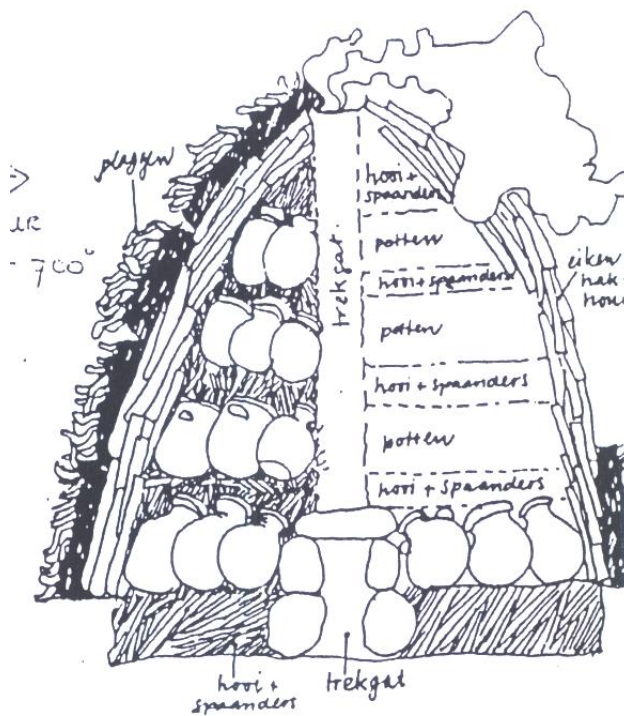 plaggen
700°
trekgat
hooi +
spaanders
potten
hooi + spaanders
potten
hooi + spaanders
potten
hooi + spaanders
eiken
hak
hooi +
spaanders
trekgat